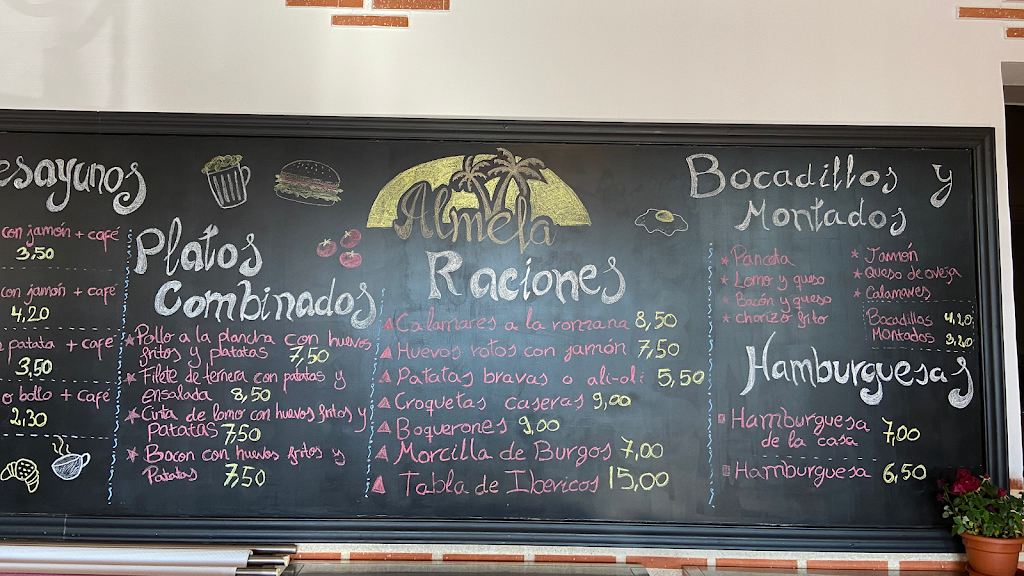 esayunos
con jamón + café
3,50
con jamón + café
4,20
patata + café
3,50
o bollo + café
2,30
Platos
Combinados
Pollo a la plancha con huevos
fritos y patatas 7,50
Filete de ternera con patatas y
ensalada 8,50
Cinta de lomo con huevos fritos y
patatas 7,50
Bacon con huevos fritos y
Patatas 7,50
Almela
Raciones
Calamares a la romana 8,50
Huevos rotos con jamón 7,50
Patatas bravas o ali-oli 5,50
Croquetas caseras 9,00
Boquerones 9,00
Morcilla de Burgos 7,00
Tabla de Ibericos 15,00
Bocadillos y
Montados
Panceta
Lomo y queso
Bacón y queso
chorizo frito
Jamón
Queso de oveja
Calamares
Bocadillos 4,20
Montados 3,20
Hamburguesas
Hamburguesa
de la casa 7,00
Hamburguesa 6,50